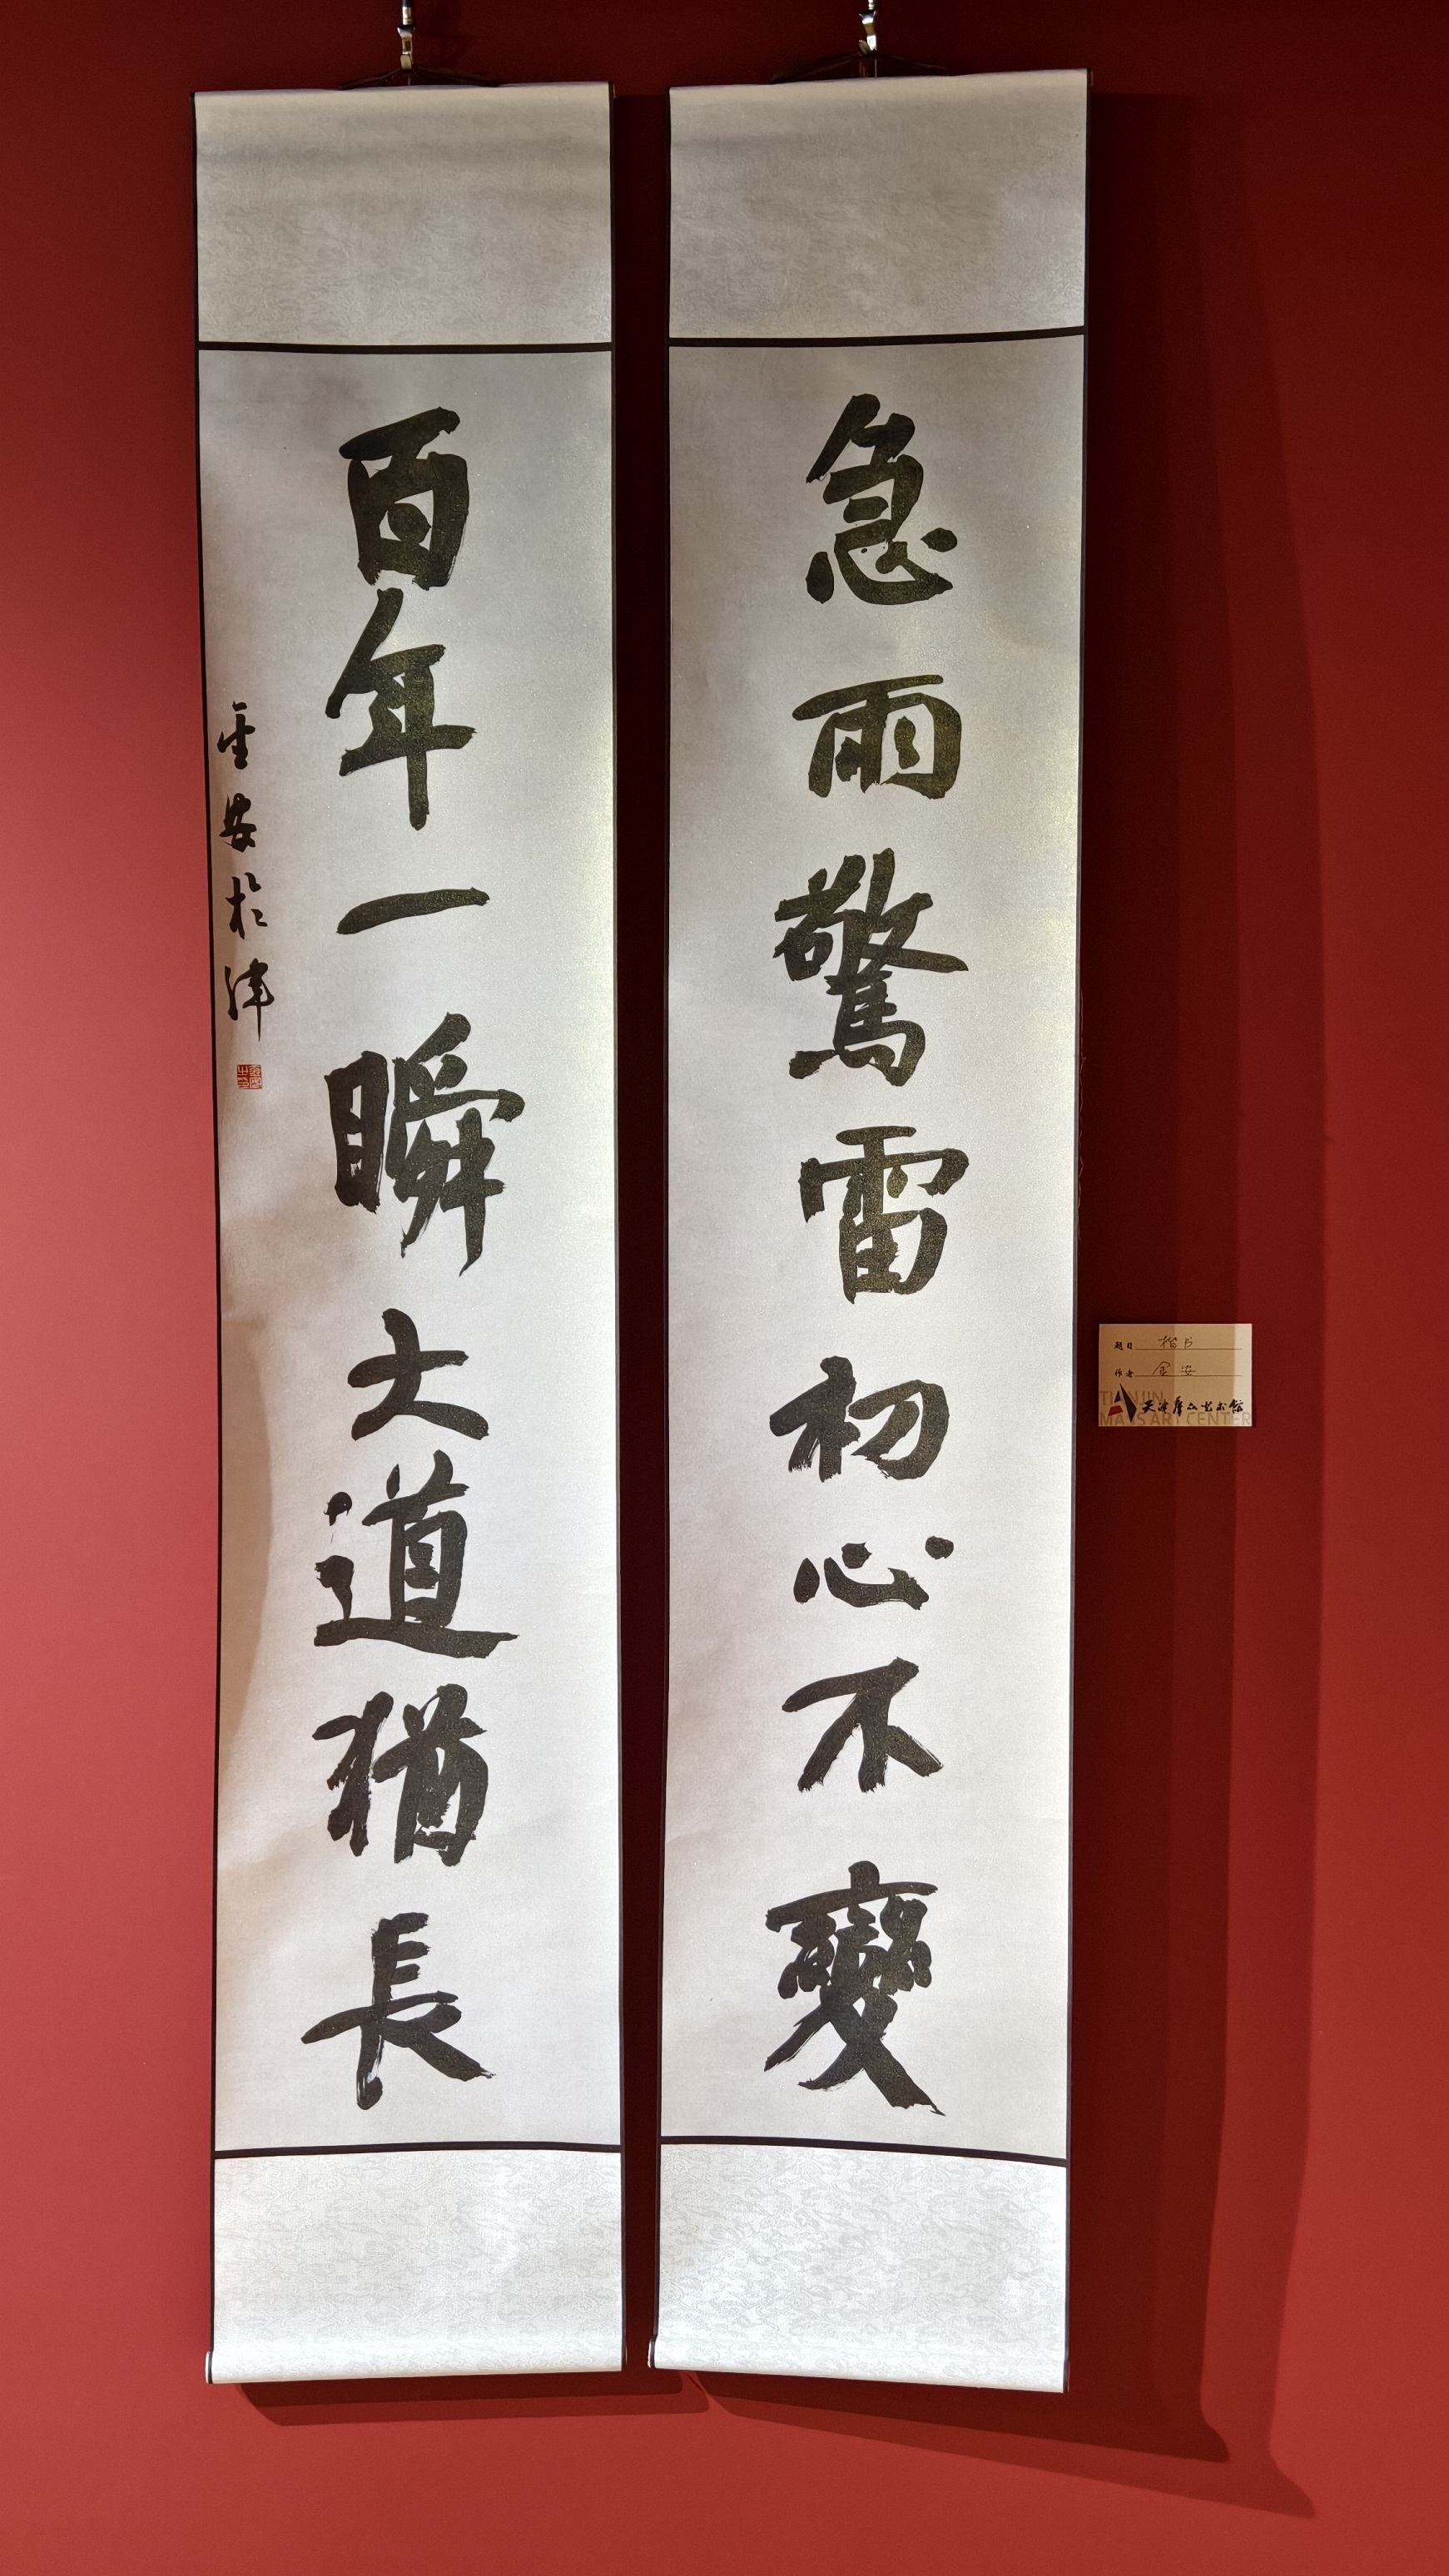 急雨驚雷初心不變
百年一瞬大道猶長
金安於津
題目 楷书
作者 金安
天津群众艺术馆
TIANJIN
MASS ART CENTER